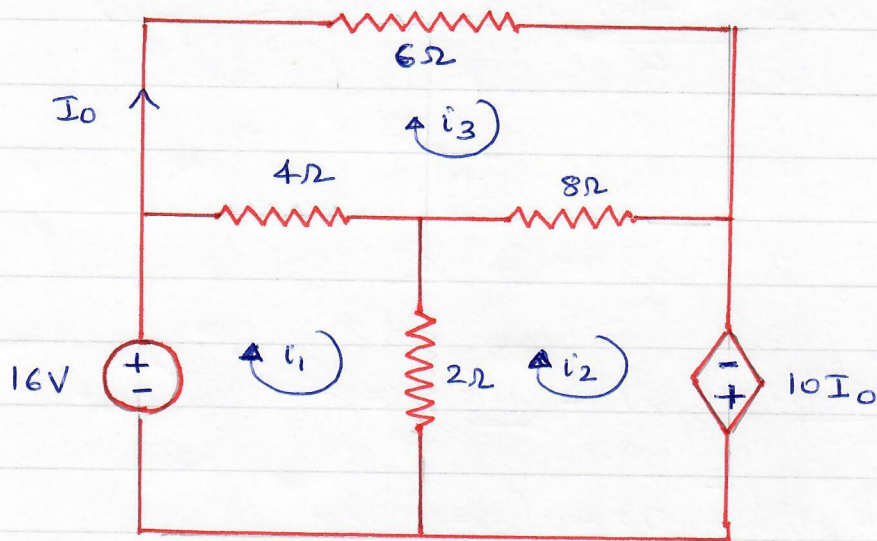 6Ω
I0
i3
4Ω
8Ω
16V
+
-
i1
2Ω
i2
-
+
10I0